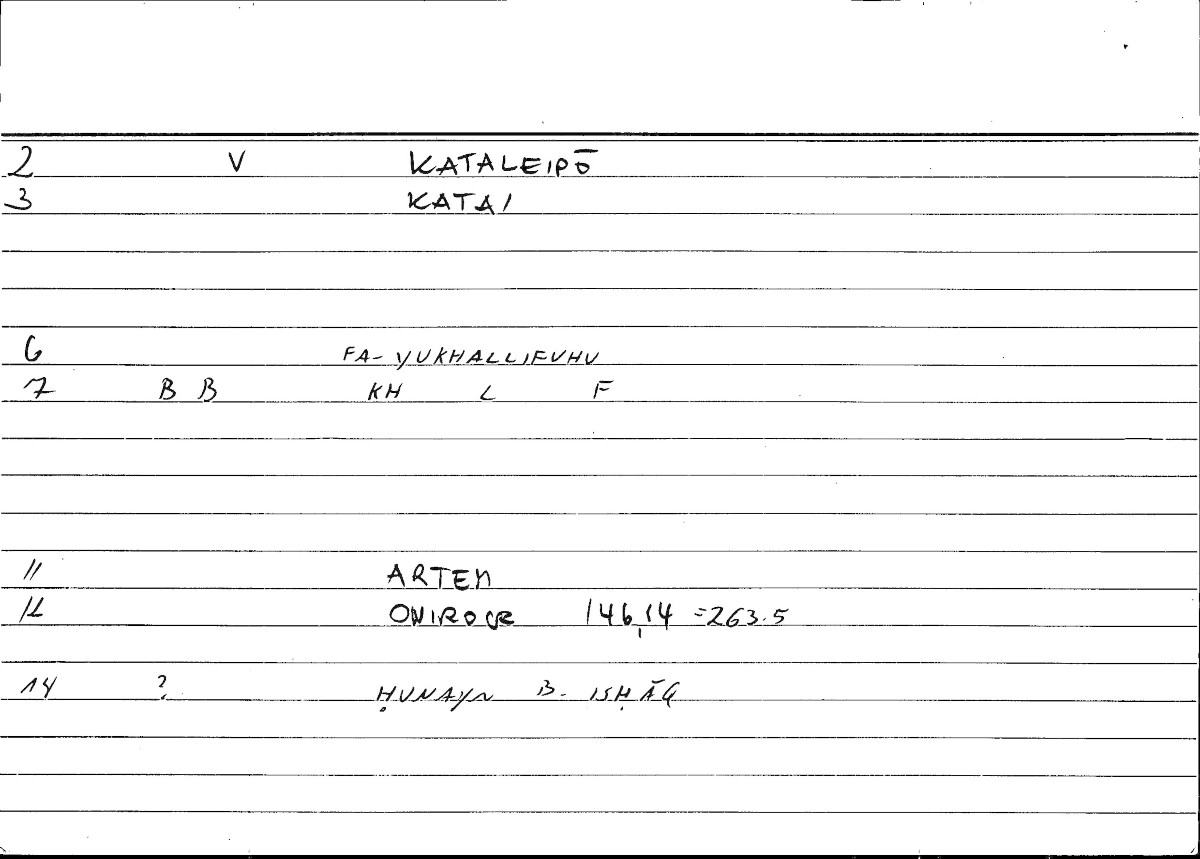 2 V KATALEIPŌ
3 KATAI
6 FA-YUKHALLIFUHU
7 B B KH L F
11 ARTEM
12 ONIROCR 146,14 =263.5
14 ? ḤUNAYN B. ISḤĀQ